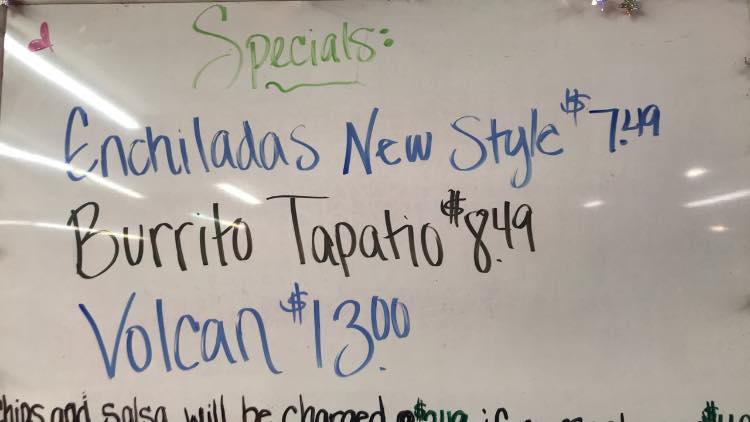 Specials:
Enchiladas New Style $7.49
Burrito Tapatio $8.49
Volcan $13.00
chips and salsa will be charged if